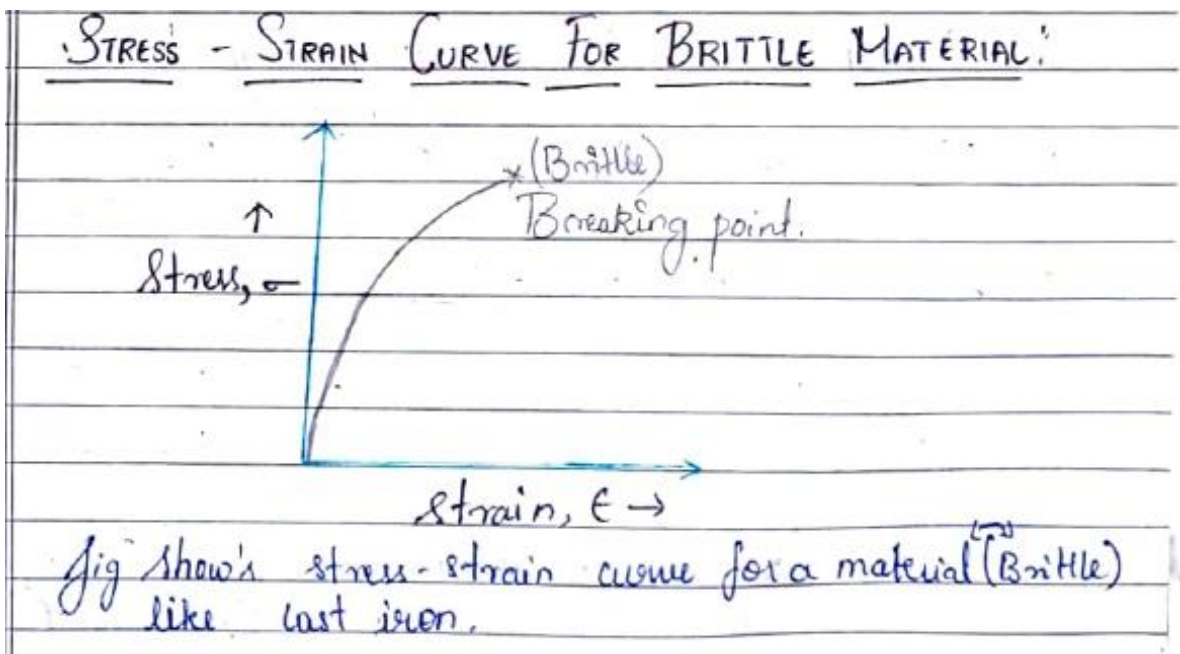 STRESS - STRAIN CURVE FOR BRITTLE MATERIAL:
(Brittle)
Breaking point.
↑
Stress, σ
Strain, ε →
fig show's stress-strain curve for a material (Brittle)
like cast iron.